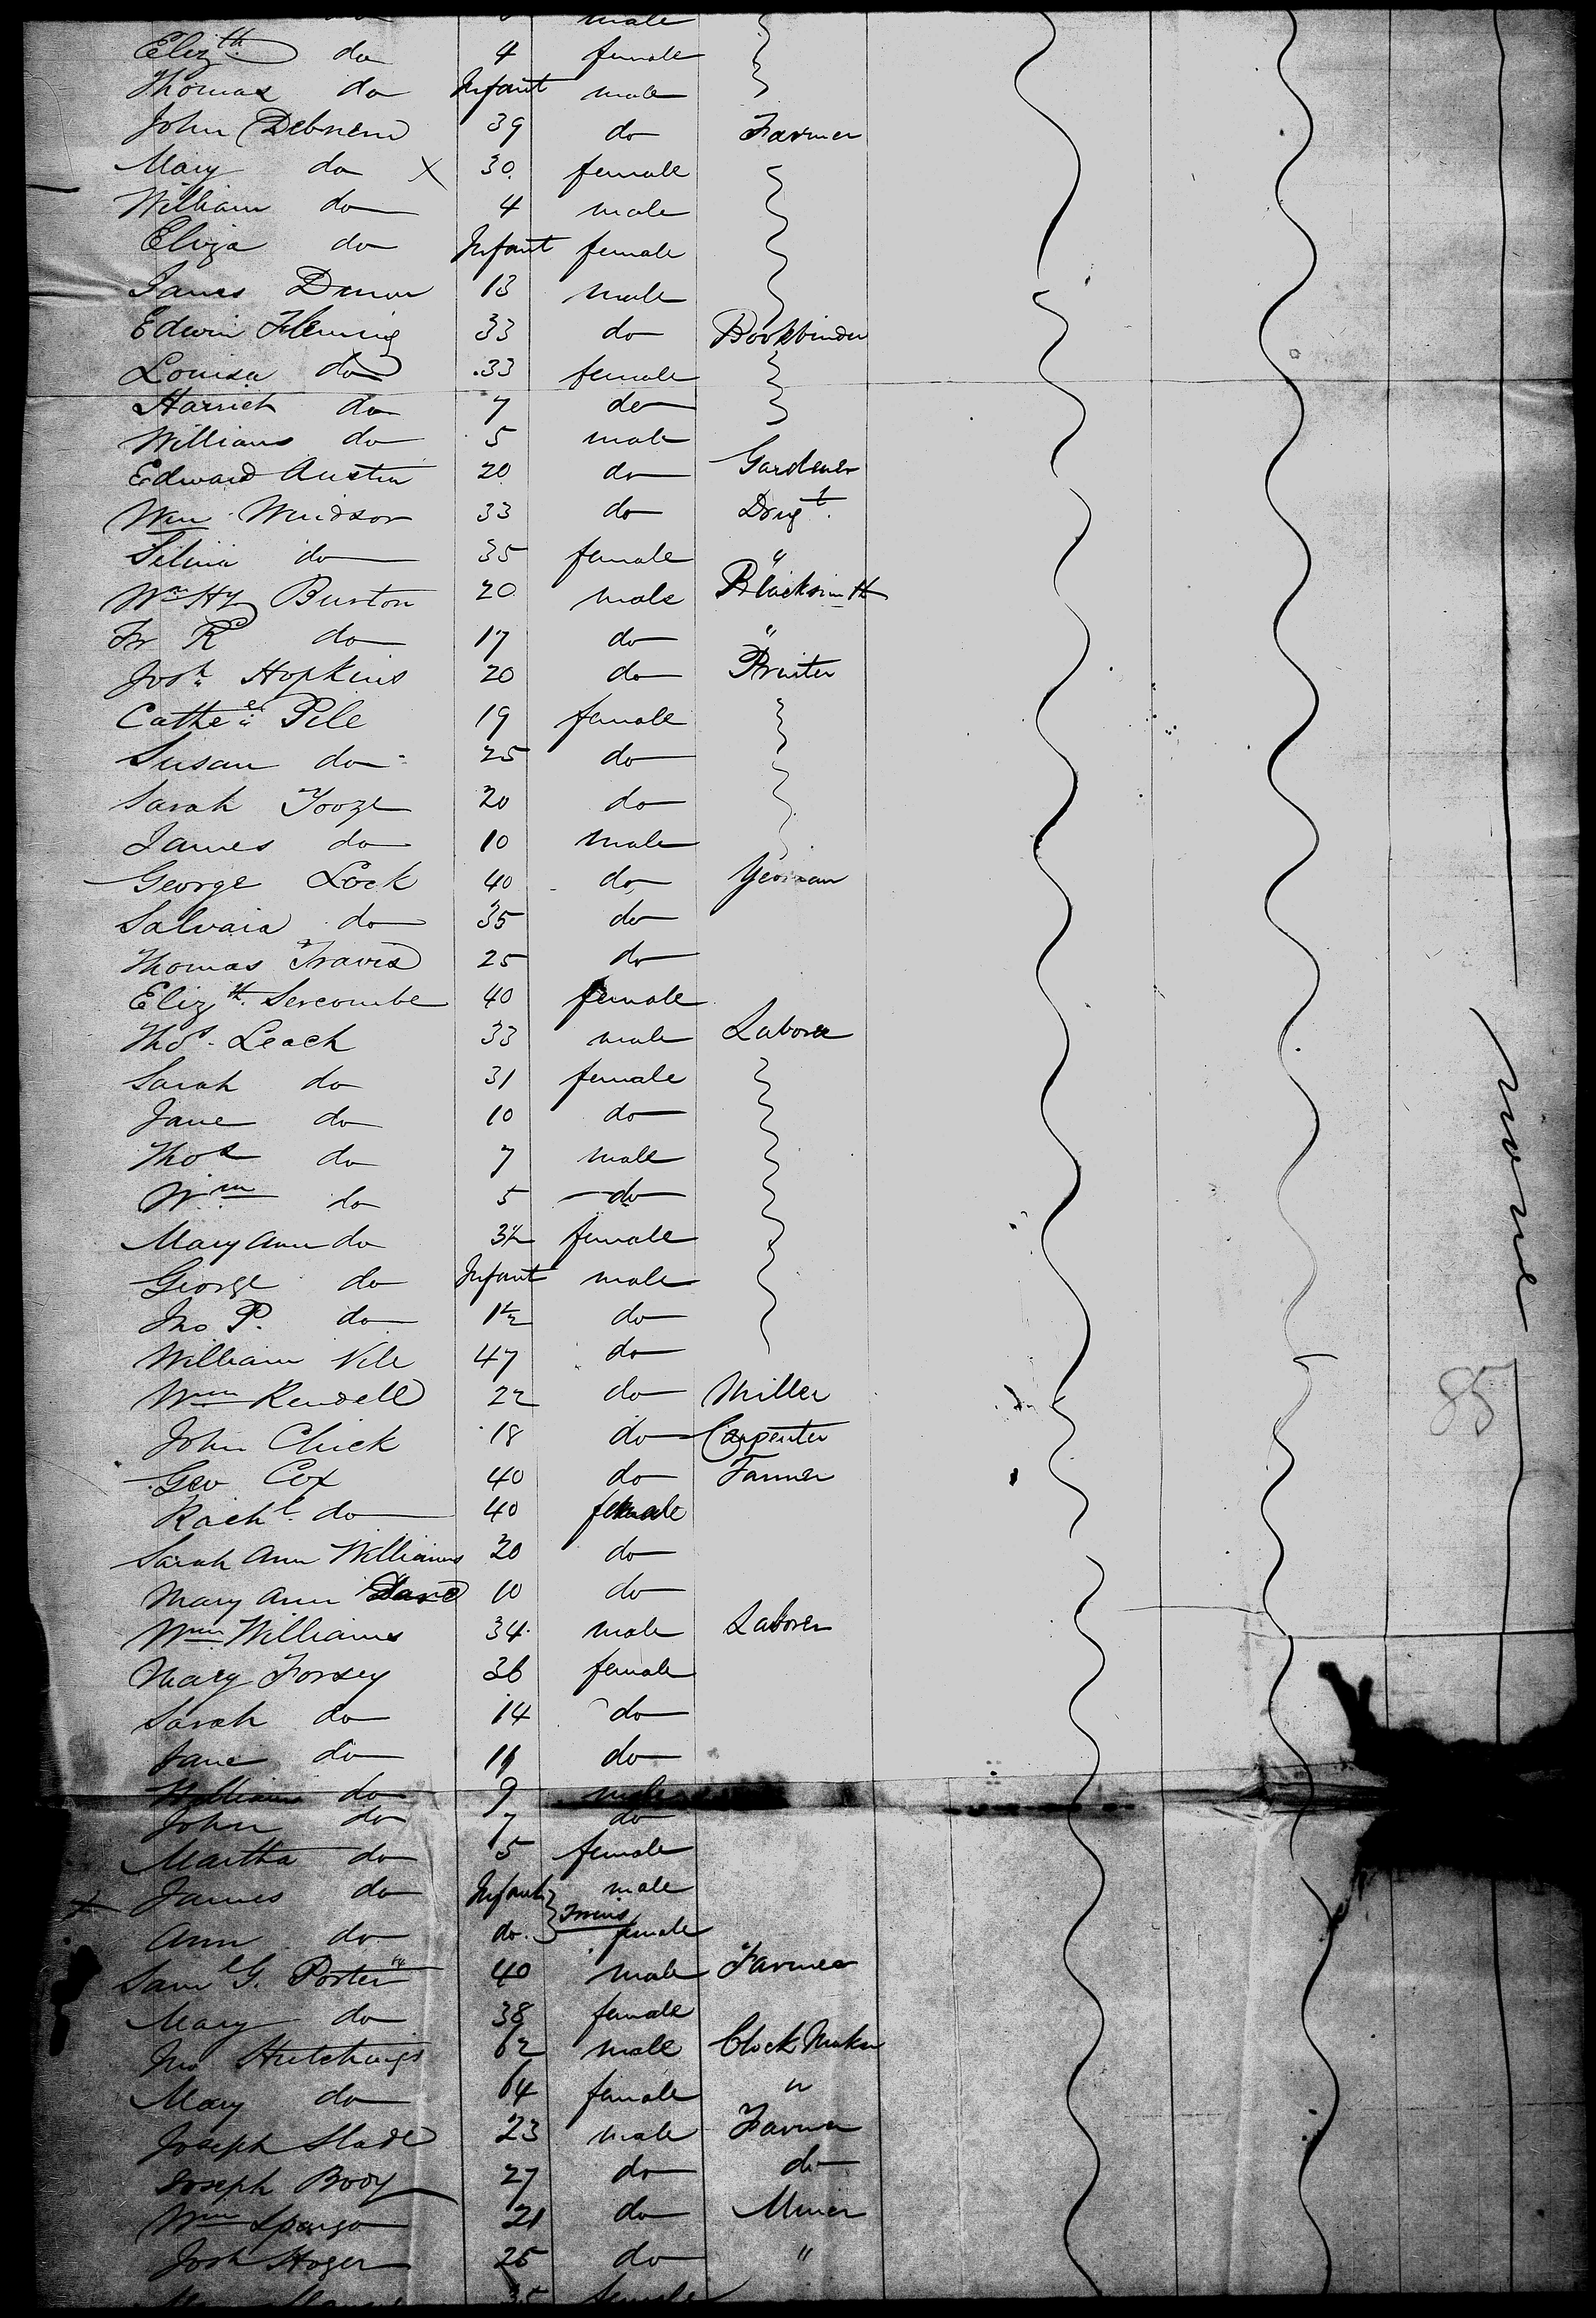 male
Eliz th do 4 female
Thomas do Infant male
John Debnem 39 do Farmer
Mary do X 30 female
William do 4 male
Eliza do Infant female
James 13 male
Edwin Fleming 33 do Bookbinder
Louisa do 33 female
Harriet do 7 do
William do 5 male
Edward Austin 20 do Gardener
Wm Windsor 33 do Drugt.
Selina do 35 female "
Wm Hy Burton 20 male Blacksmith
Fr R do 17 do "
Josh Hopkins 20 do Printer
Cathe e Pile 19 female
Susan do 25 do
Sarah Tooze 20 do
James do 10 male
George Lock 40 do Yeoman
do 35 do
Thomas Travis 25 do
Eliz th. Sercombe 40 female
Thos. Leach 33 male Laborer
Sarah do 31 female
Jane do 10 do
Thos do 7 male
Wm do 5 do
Mary Ann do 3½ female
George do Infant male
Jno P. do 1½ do
William Vile 47 do
Wm Rendell 22 do Miller
John Chick 18 do Carpenter
Geo Cox 40 do Farmer
Rachl. do 40 female
Sarah Ann Williams 20 do
Mary Ann 10 do
Wm Williams 34 male Laborer
Mary Forsey 36 female
Sarah do 14 do
Jane do 11 do
William do 9 male
John do 7 do
Martha do 5 female
X James do Infant } male
Twins
Ann do do. } female
Saml G. Porter 40 male Farmer
Mary do 38 female
Jno Hutchings 62 male Clock Maker
Mary do 64 female "
Joseph Slade 23 male Farmer
Joseph Body 27 do do
Wm Spargo 21 do Miner
Josh Hoger 25 do "
35 female
none
85